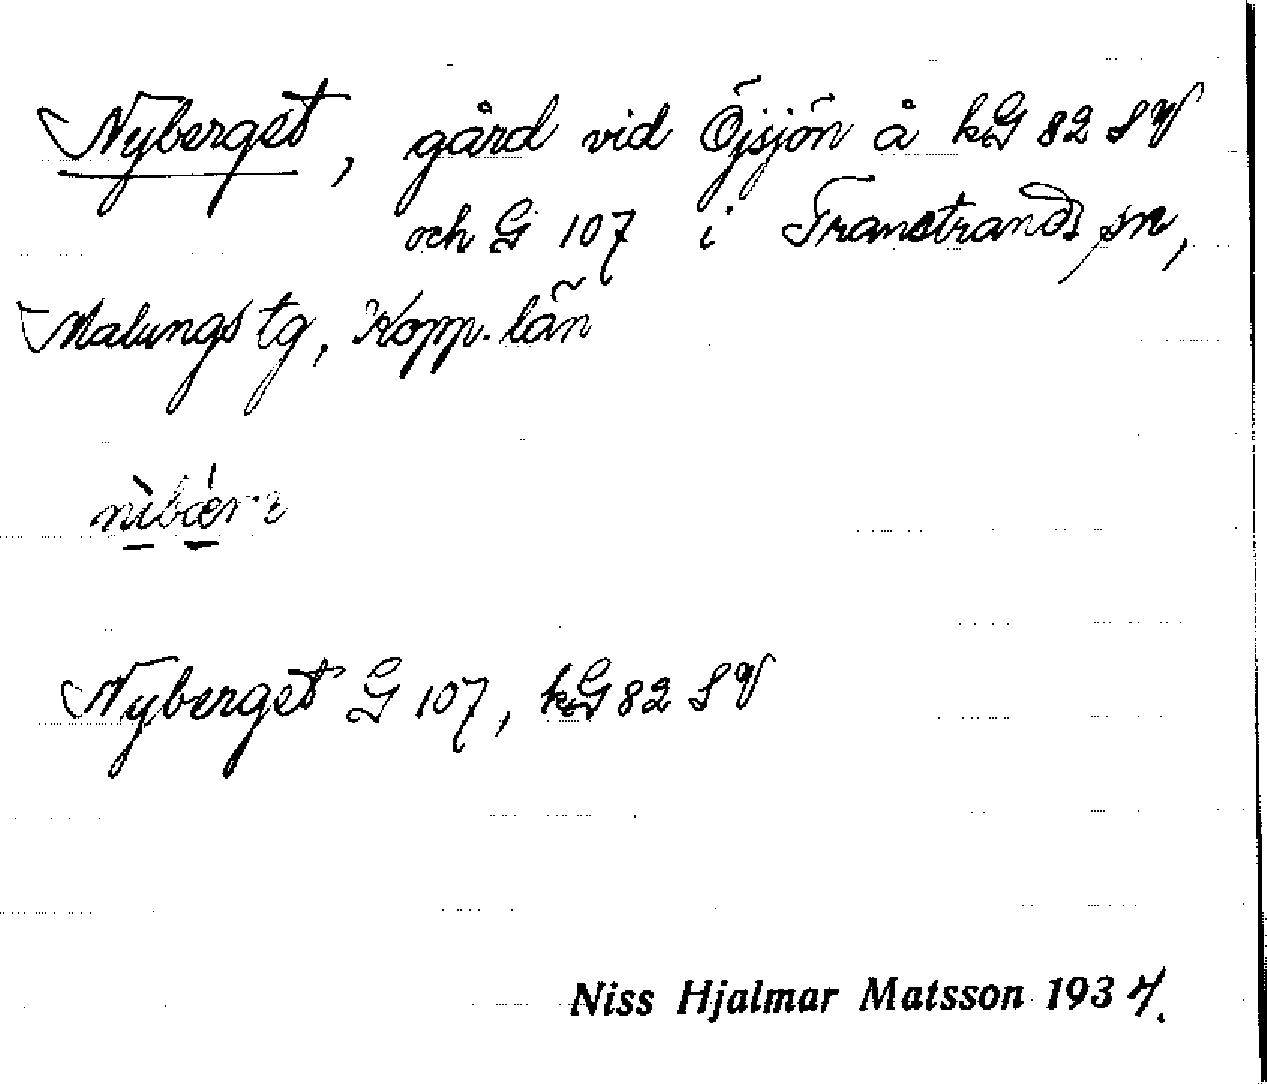 Nyberget, gård vid Öjsjön å kG 82 SV
och G 107 i Transtrands sn,
Malungs tg, Kopp. län
Nyberget G 107, kG 82 SV
Niss Hjalmar Matsson 1937.